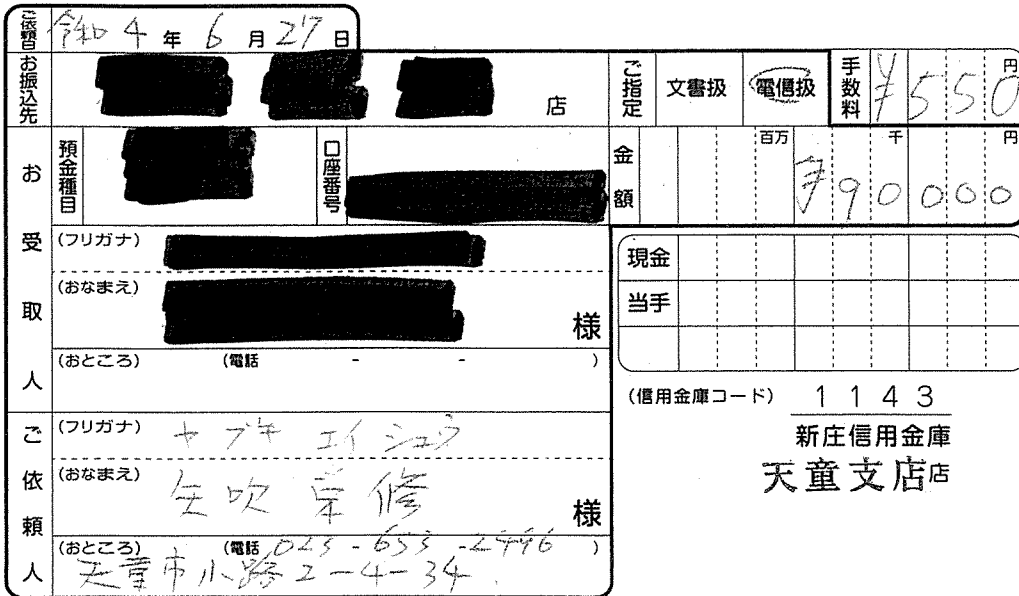 ご依頼日 令和4年6月27日
お振込先 店 ご指定 文書扱 電信扱 手数料 円 ¥550
お受取人 預金種目 口座番号 金額 百万 千 円 ¥90000
(フリガナ)
(おなまえ) 様
(おところ) (電話 - - )
現金
当手
(信用金庫コード) 1143
新庄信用金庫
天童支店店
ご依頼人 (フリガナ) ヤブキ エイシュウ
(おなまえ) 矢吹 栄修 様
(おところ) (電話 023-653-2496 )
天童市小路2-4-34